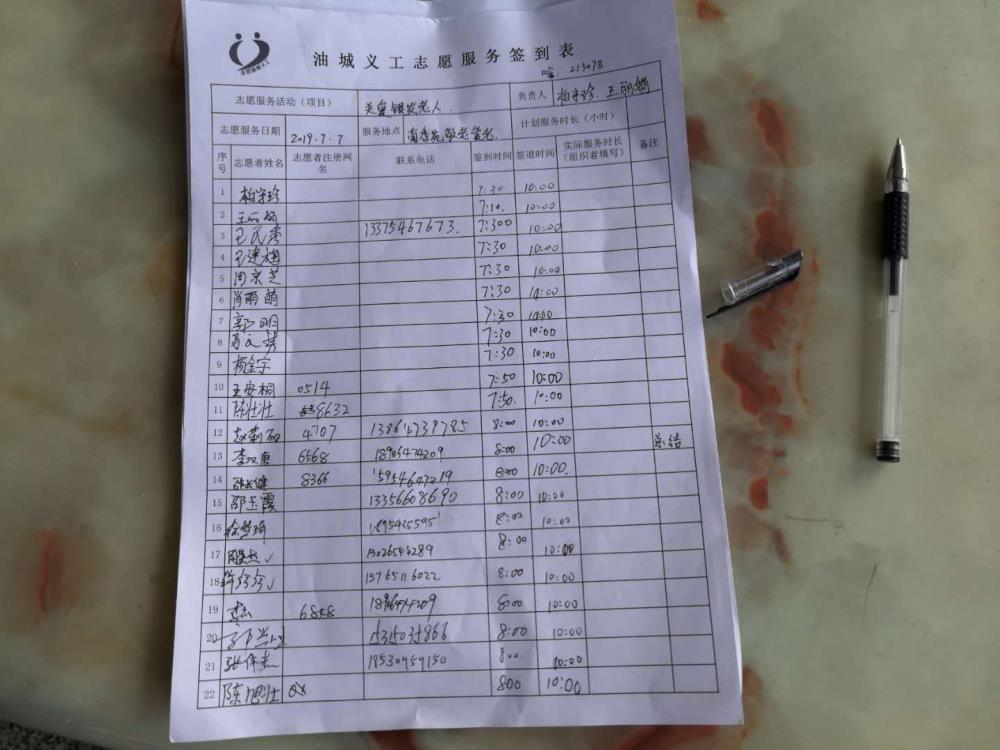 东营油城义工
油城义工志愿服务签到表
213078
志愿服务活动（项目） 关爱银发老人. 负责人 柏守珍. 王丽娟
志愿服务日期 2019.7.7 服务地点 计划服务时长（小时）
序号 志愿者姓名 志愿者注册网名 联系电话 签到时间 签退时间 实际服务时长（组织者填写） 备注
1 柏守珍 7:30 10:00
2 王丽娟 7:30. 10:00
3 王民秀 13375467673. 7:300 10:00
4 王建梅 7:30 10:00
5 周京芝 7:30 10:00
6 肖雨萌 7:30 10:00
7 郭明 7:30 10:00
8 7:30 10:00
9 杨金宇 7:30 10:00
10 王安桐 0514 7:50 10:00
11 陈壮壮 8632 7:50. 10:00
12 赵莉丽 4707 13864738785 8:00 10:00
13 李汉唐 6568 18906474209 8:00 10:00 总结
14 8366 15954607219 8:00 10:00
15 邵玉霞 13356608690 8:00 10:00
16 徐梦琦 8:00 10:00
17 8:00 10:00
18 15765116022 8:00 10:00
19 6888 8:00 10:00
20 8:00 10:00
21 18530959150 8:00 10:00
22 陈 800 10:00